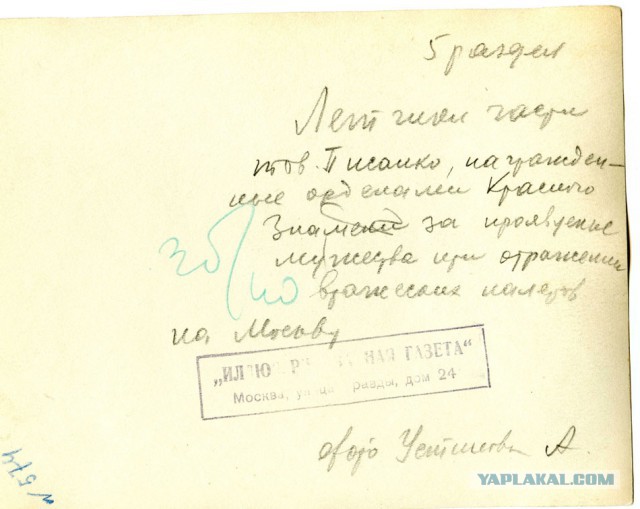 5 раздел
Летчики части
тов. Писанко, награжден-
ные орденами Красного
Знамени за проявление
мужества при отражении
вражеских налетов
на Москву
30/
40
„ИЛЛЮ РА НАЯ ГАЗЕТА“
Москва, ули ца равды, дом 24
фото А.
574
YAPLAKAL.COM